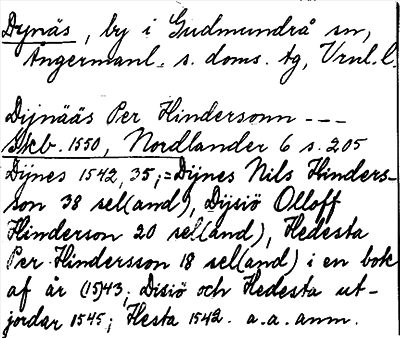 Dynäs, by i Gudmundrå sn,
Ångermanl. s. doms. tg, Vrnl. l.
Dijnääs Per Hindersonn ---
Skb. 1550, Nordlander 6 s. 205
Dijnes 1542, 35; = Dÿnes Nils Hinders-
son 38 sel(and), Dÿsiö Olloff
Hinderson 20 sel(and), Hedesta
Per Hindersson 18 sel(and) i en bok
af år (15)43; Disiö och Hedesta ut-
jordar 1545; Hesta 1542. a.a. anm.